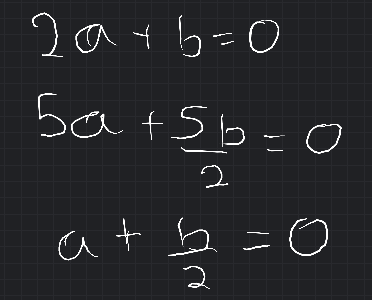 2a + b = 0
5a + 5b/2 = 0
a + b/2 = 0